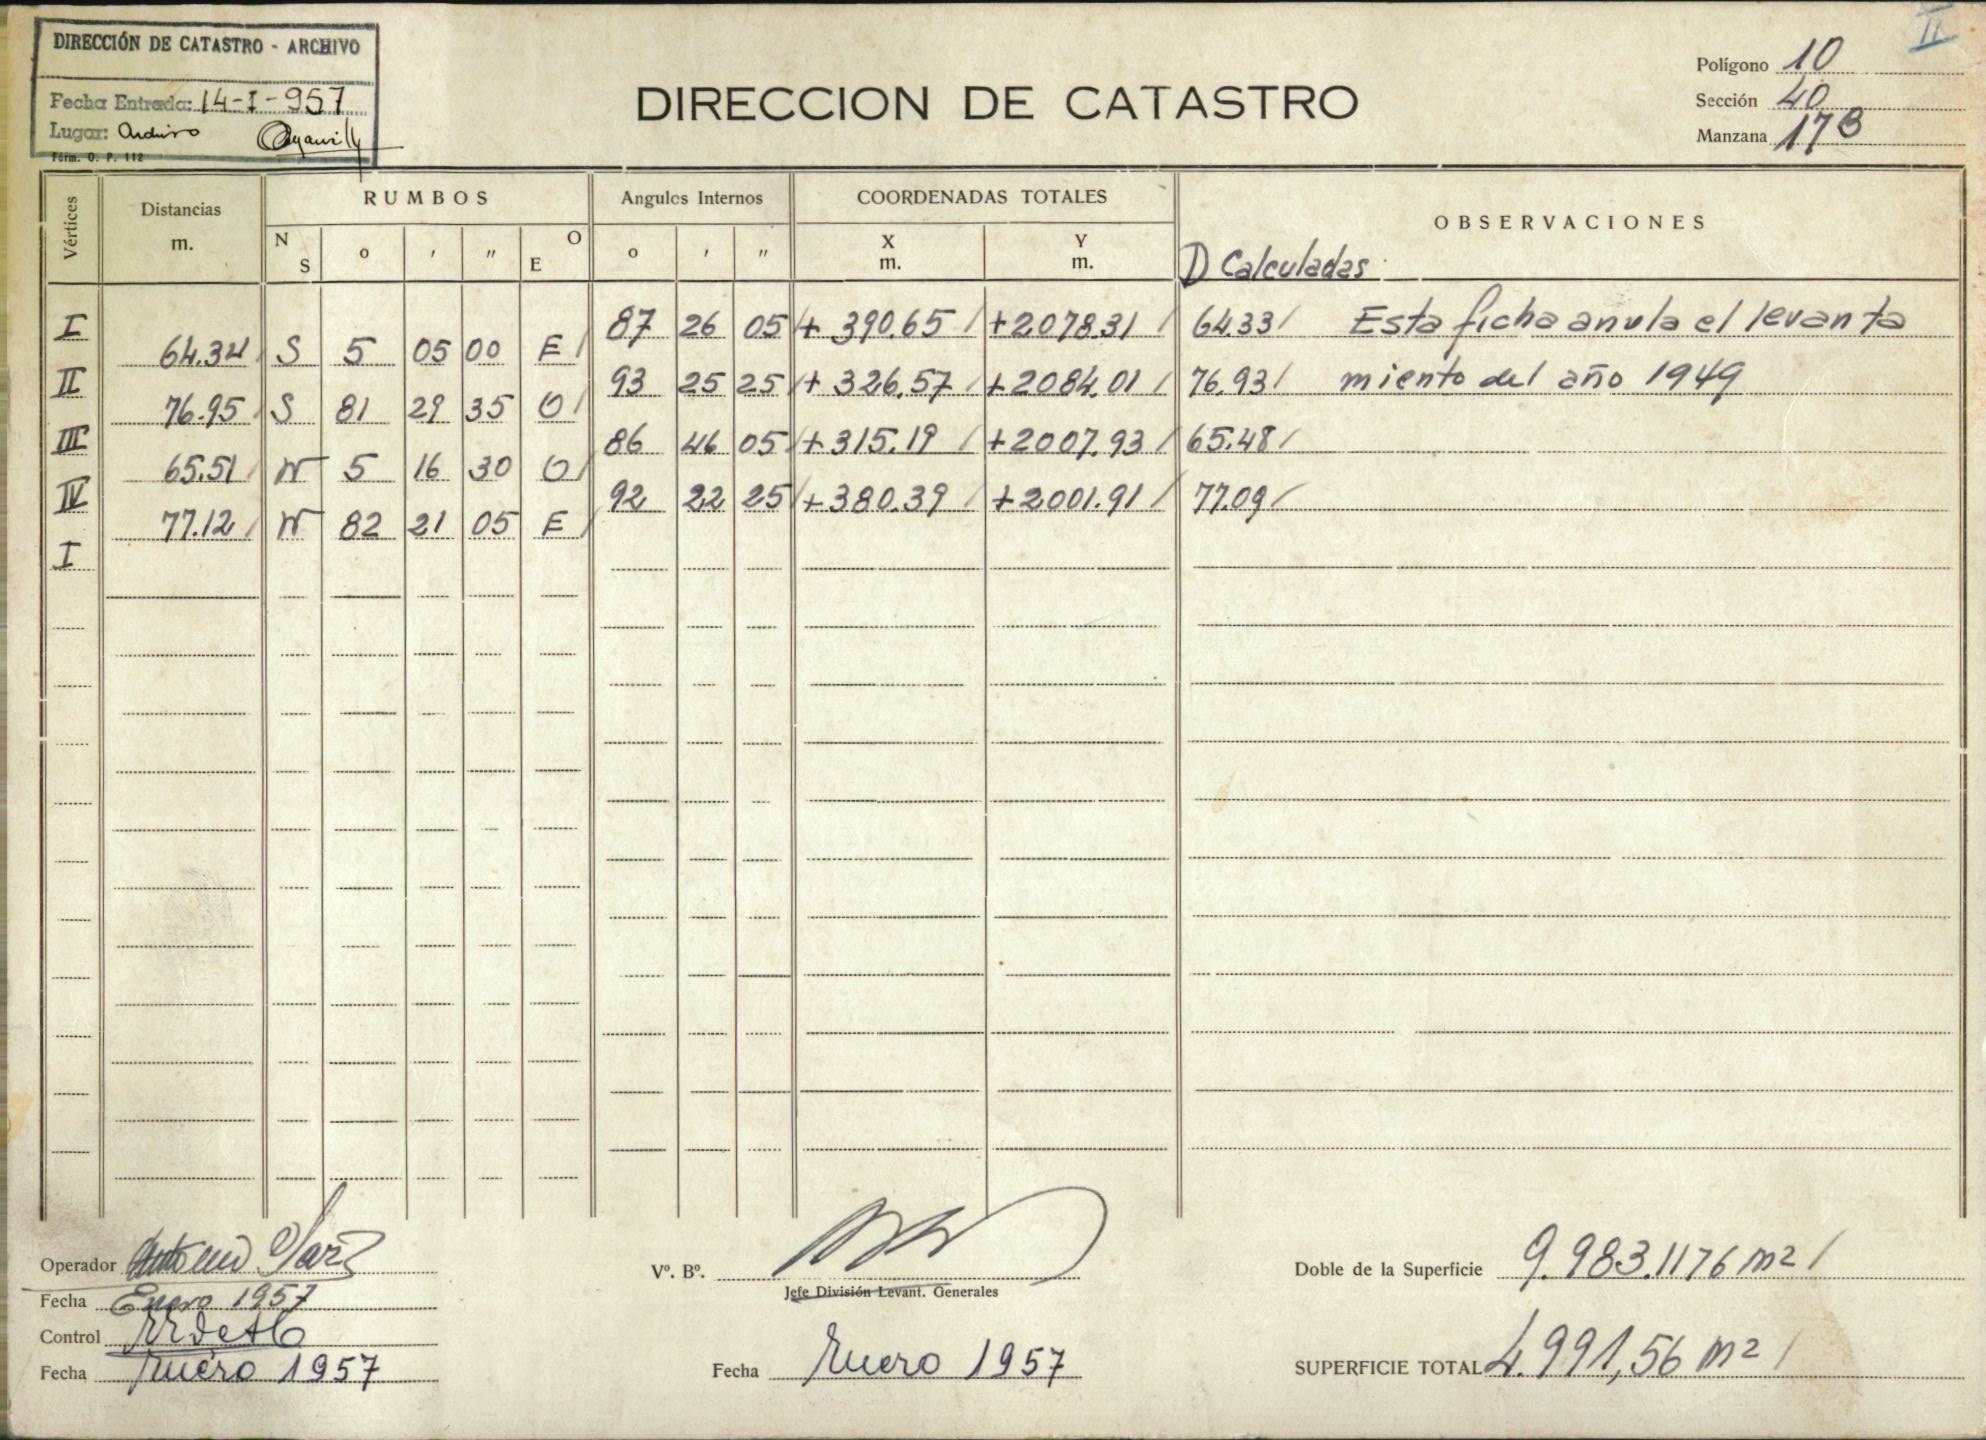 II
DIRECCIÓN DE CATASTRO - ARCHIVO
Fecha Entrada: 14-I-957
Lugar: Archivo
Fórm. O. P. 112
DIRECCION DE CATASTRO
Polígono 10
Sección 40
Manzana 17B
Vértices Distancias m. RUMBOS Angulos Internos COORDENADAS TOTALES OBSERVACIONES
N S ° ' " O E ° ' " X m. Y m. D Calculadas
I 87 26 05 + 390.65 +2078.31 64.33 Esta ficha anula el levanta
64.34 S 5 05 00 E
II 93 25 25 + 326.57 +2084.01 76.93 miento del año 1949
76.95 S 81 29 35 O
III 86 46 05 +315.19 +2007.93 65.48
65.51 N 5 16 30 O
IV 92 22 25 +380.39 +2001.91 77.09
77.12 N 82 21 05 E
I
Operador Antonio
Fecha Enero 1957
Control
Fecha Enero 1957
Vº. Bº.
Jefe División Levant. Generales
Fecha Enero 1957
Doble de la Superficie 9.983.1176 m2
SUPERFICIE TOTAL 4.991,56 m2